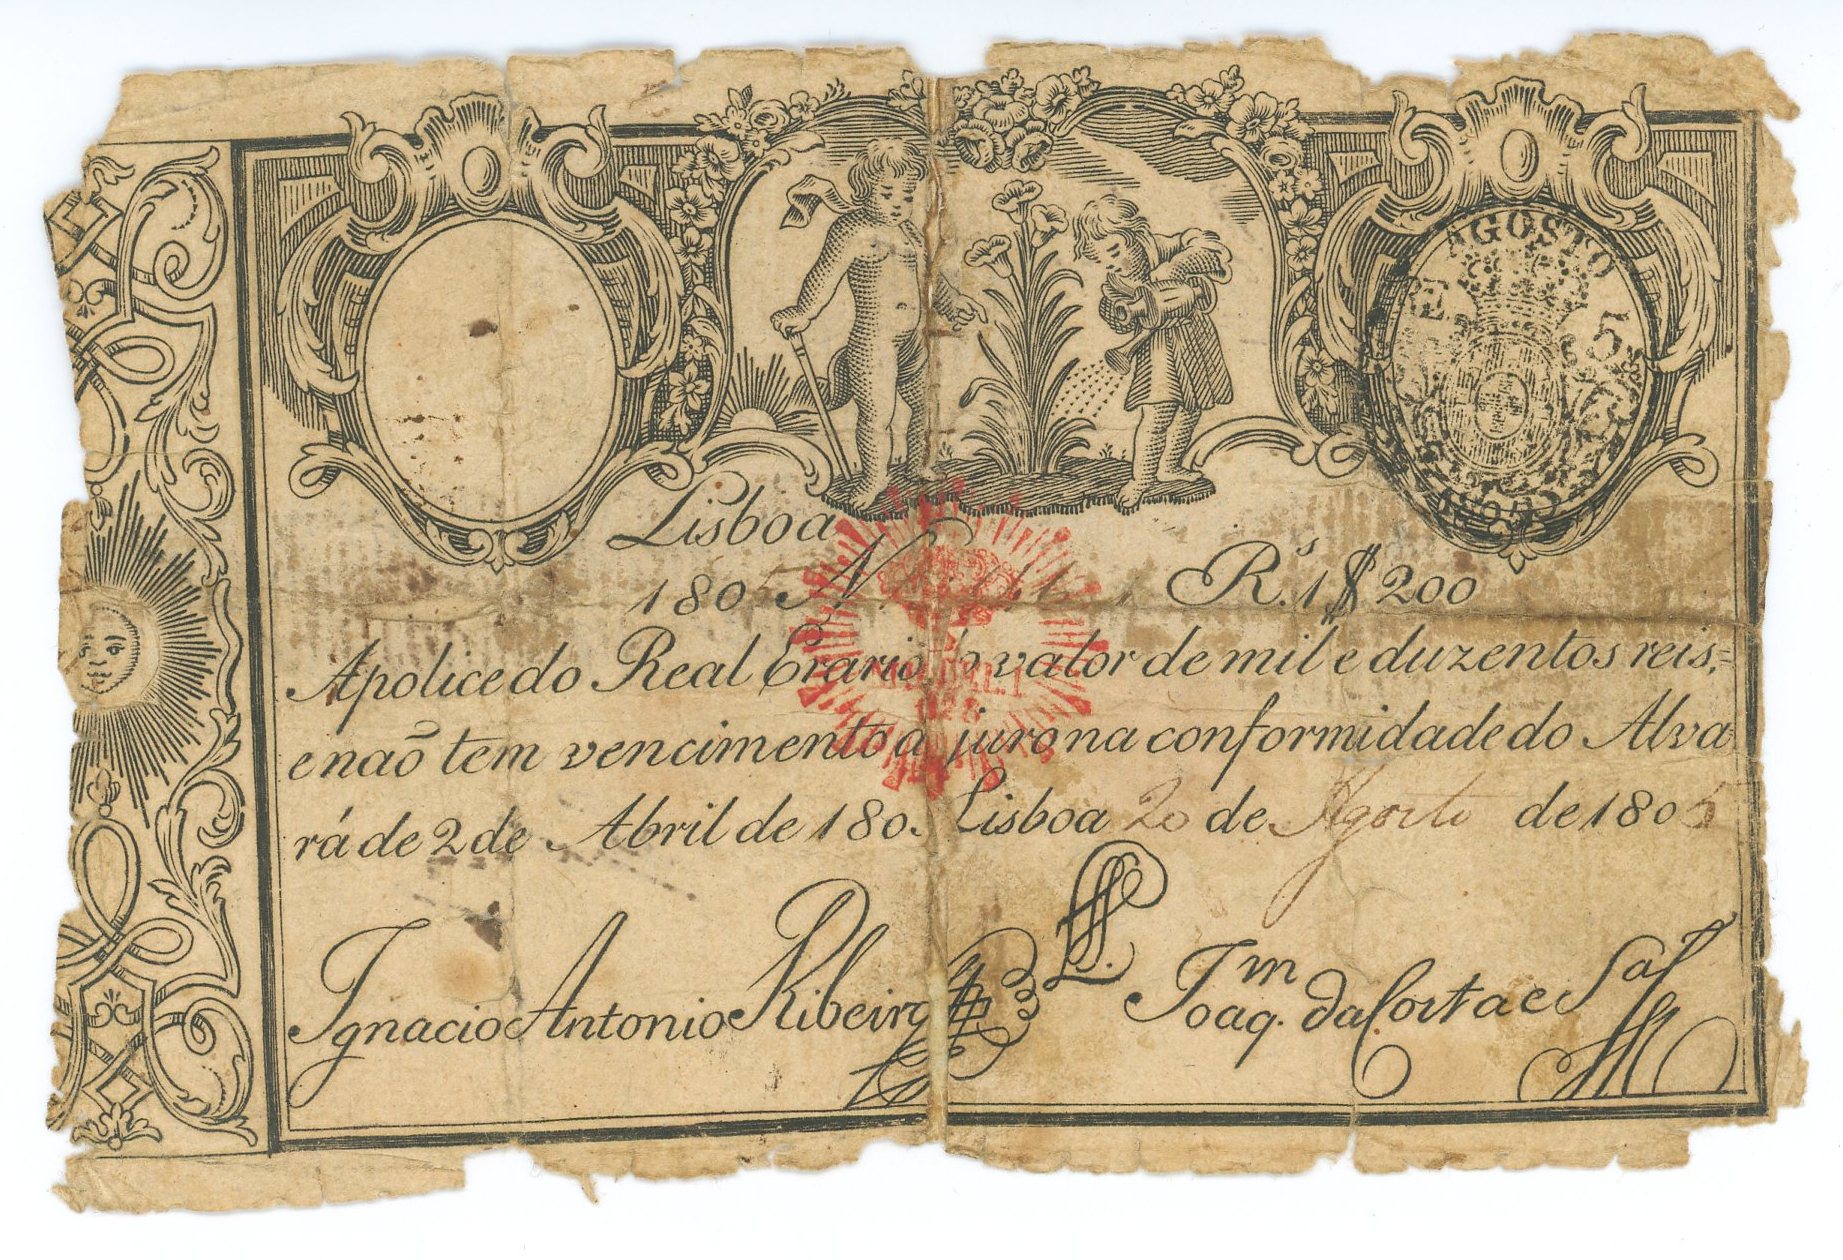 AGOSTO
DE 5
Lisboa
1805 N R.s 1$200
Apolice do Real Erario do valor de mil e duzentos reis,=
e naõ tem vencimento a juro na conformidade do Alva=
rá de 2 de Abril de 1805 Lisboa 20 de Agosto de 1805
Ignacio Antonio Ribeiro
Joaq.m da Costa e Sa